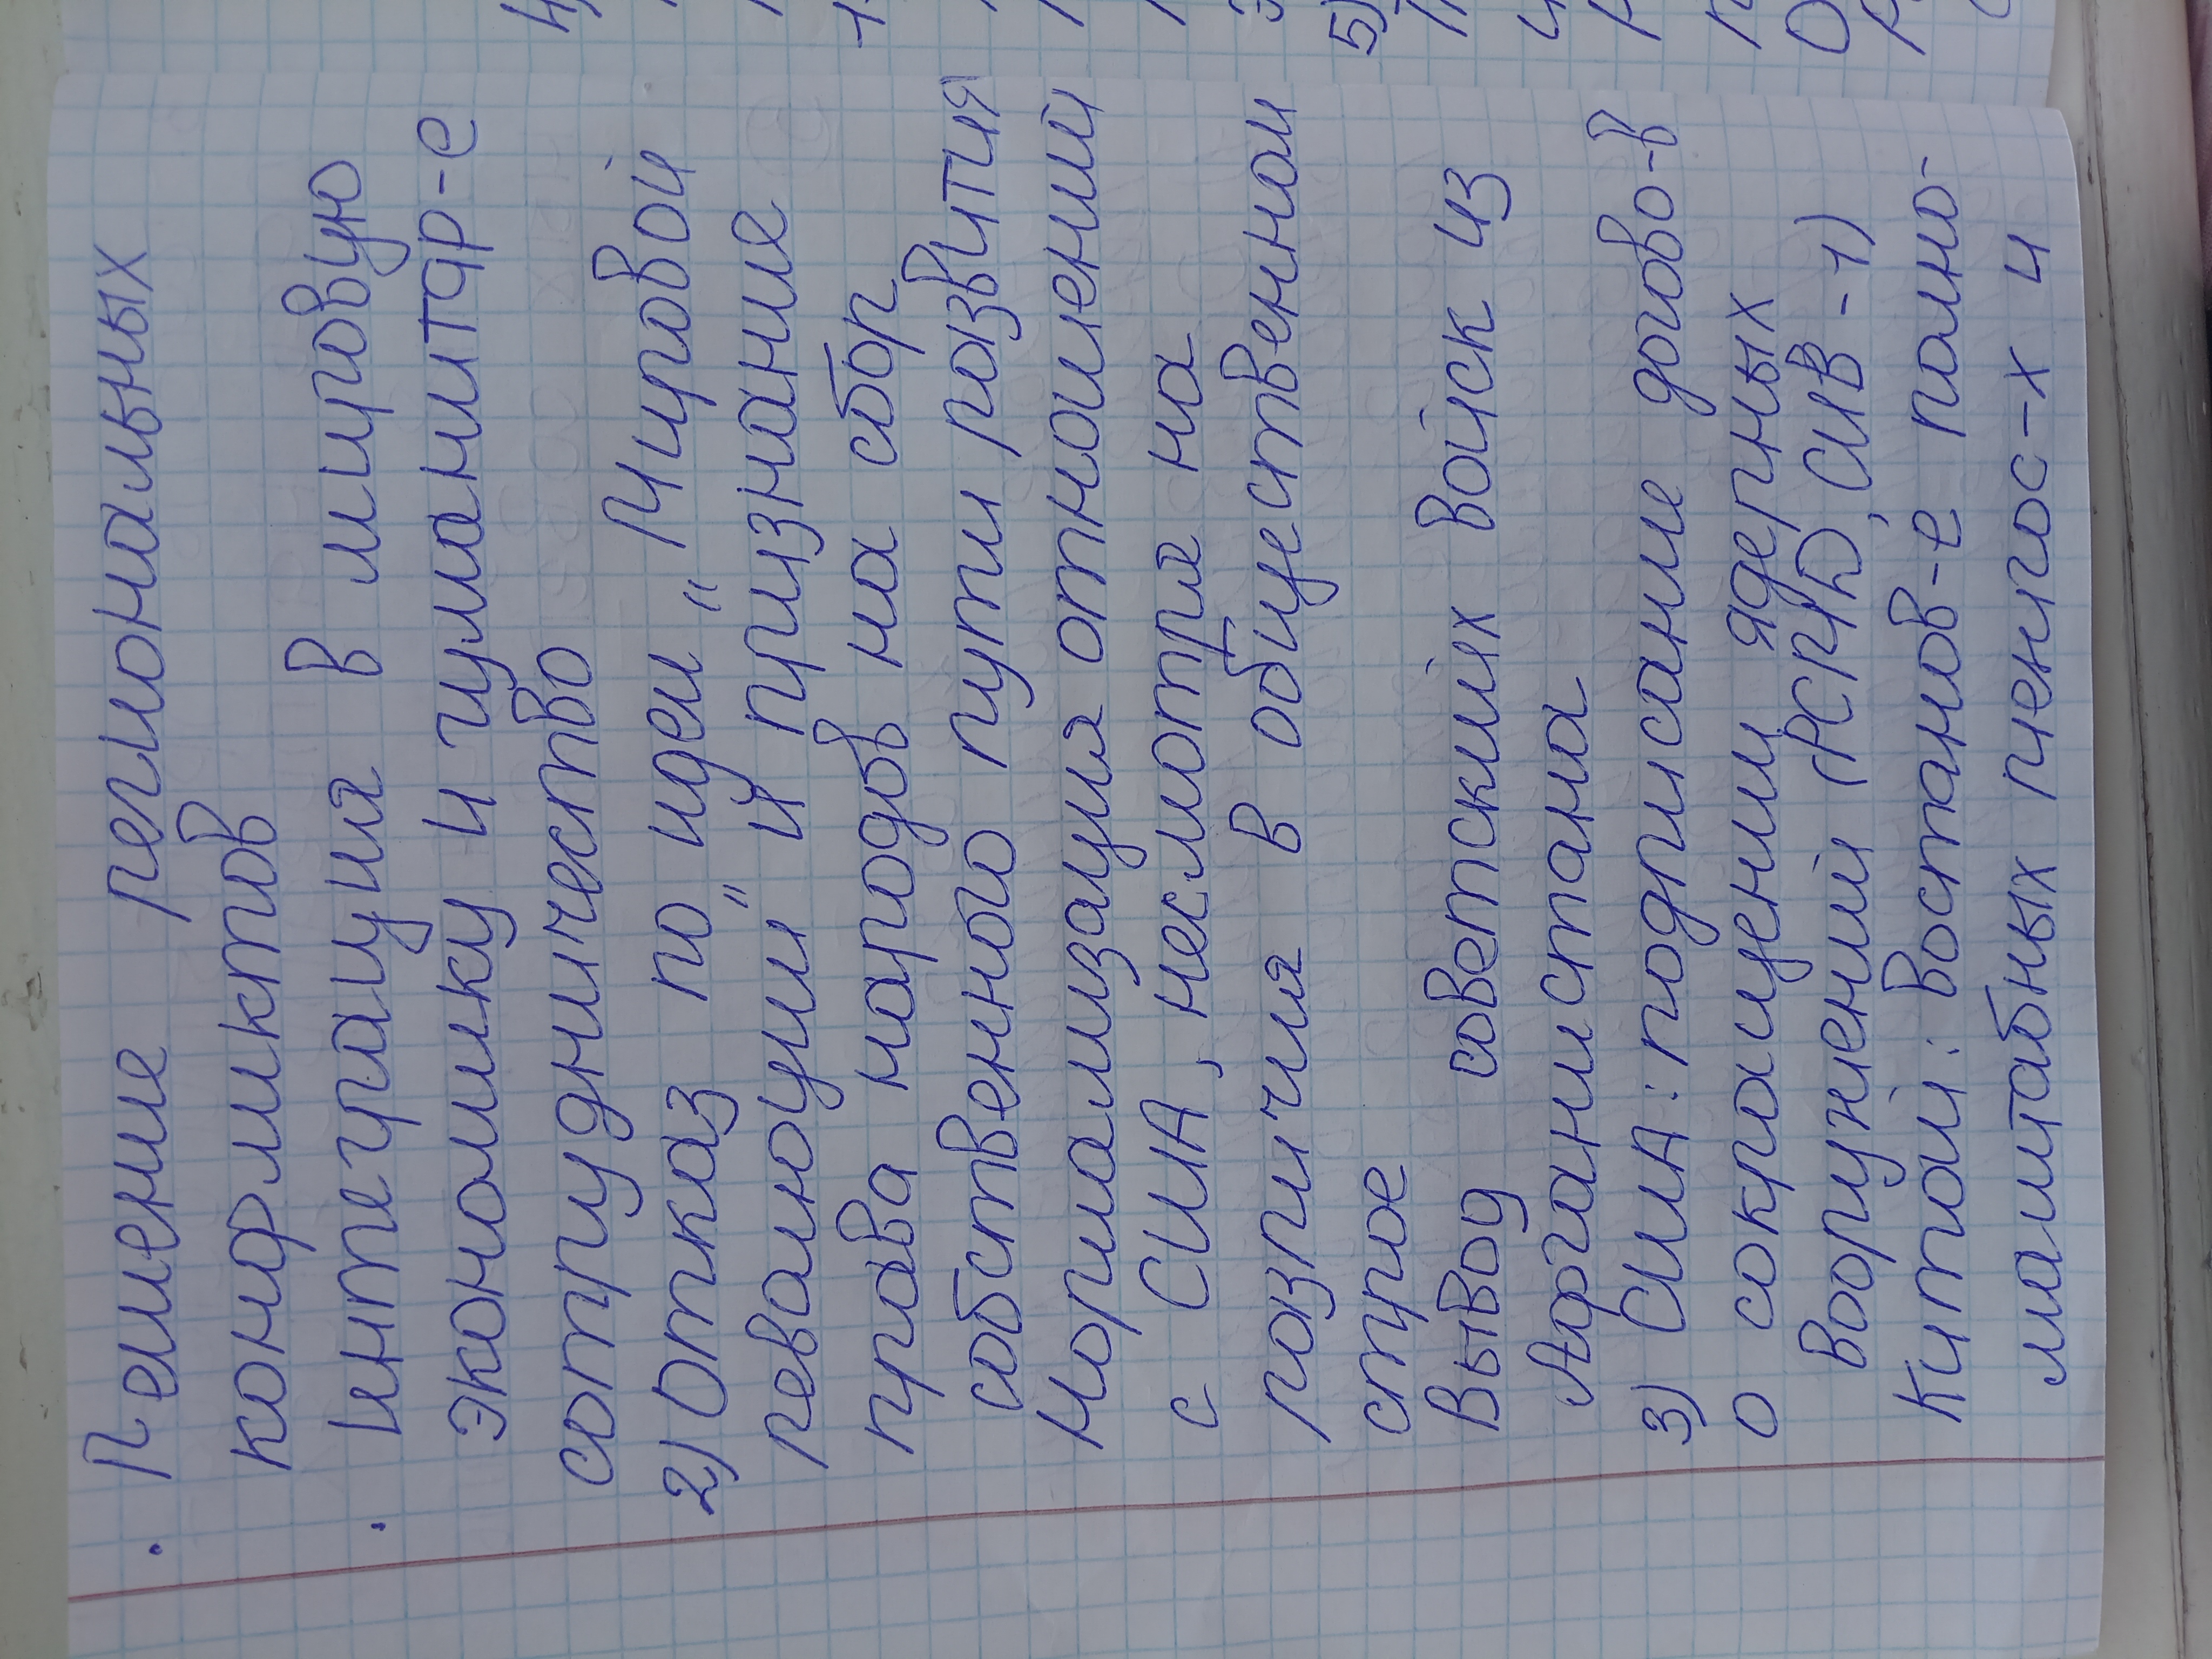 · Решение региональных
конфликтов
· Интеграция в мировую
экономику и гуманитар-е
сотрудничество
2) Отказ по идеи „Мировой
революции" и признание
права народов на сбор
собственного пути развития
Нормализация отношений
с США, несмотря на
различия в общественном
строе
Вывод советских войск из
Афганистана
3) США: подписание догово-в
о сокращении ядерных
вооружений (РСМД, СНВ-1)
Китай: востанов-е полно-
масштабных межгос-х и
4)
5)